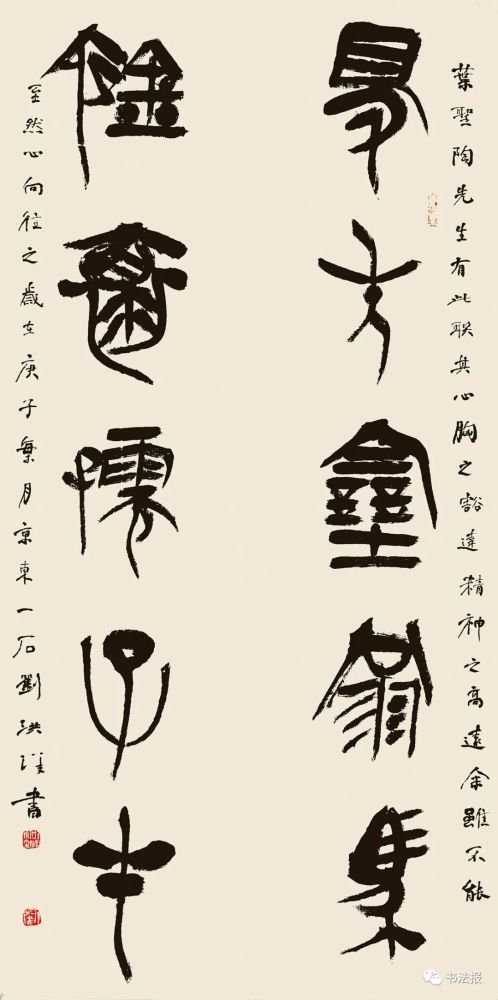 葉聖陶先生有此联其心胸之豁達精神之高遠余雖不能
得失塞翁馬
襟懷孺子牛
至然心向往之歲在庚子葉月京東一石劉洪書
书法报